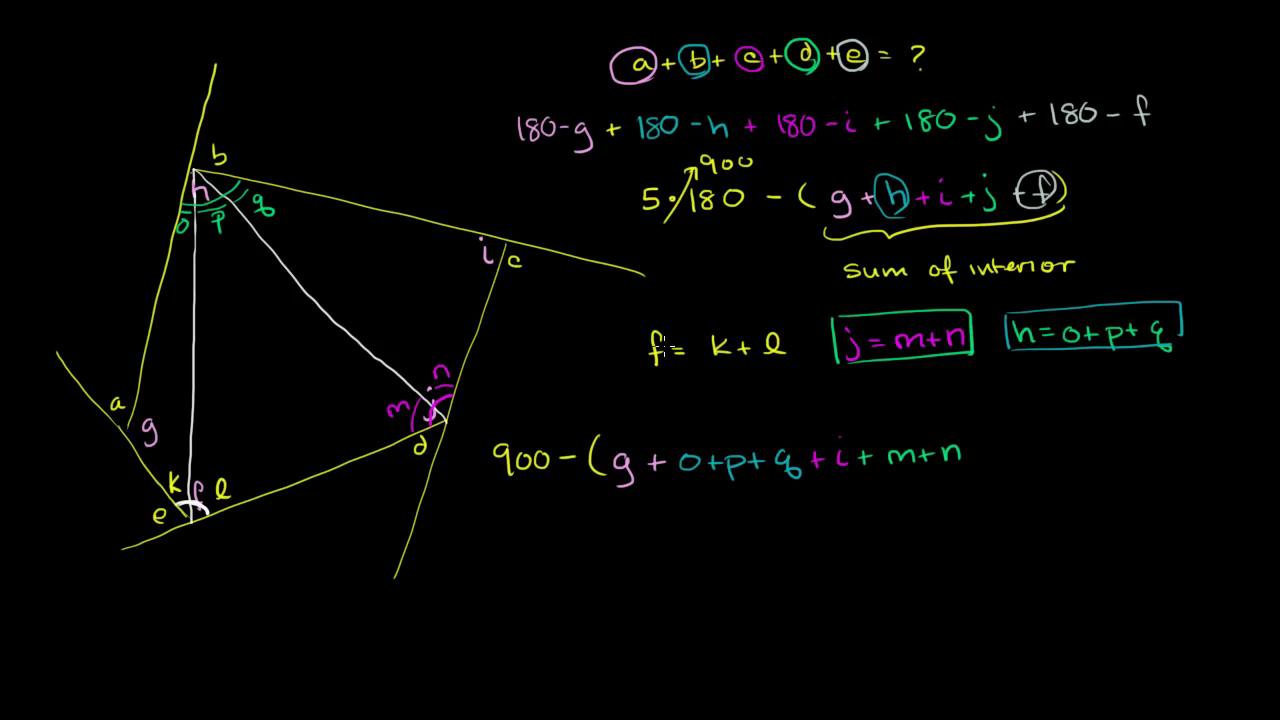 a + b + c + d + e = ?
180-g + 180-h + 180-i + 180-j + 180-f
900
5·180 - (g+h+i+j+f)
sum of interior
f = k + l
j = m+n
h = o+p+q
900 - (g + o+p+q + i + m+n
b
h
o
p
q
i
c
n
m
j
d
a
g
k
f
l
e